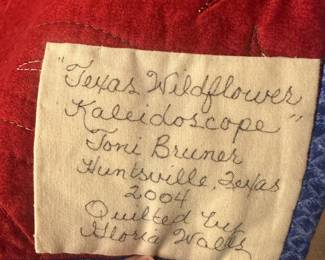 "Texas Wildflower
Kaleidoscope"
Toni Bruner
Huntsville, Texas
2004
Quilted by
Gloria Walls